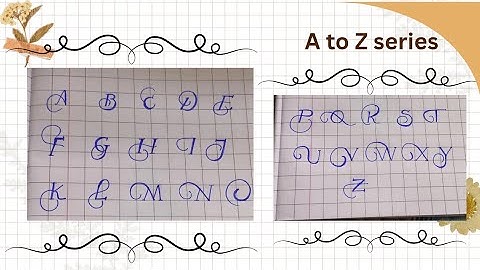 A to Z series
A B C D E
F G H I J
K L M N O
P Q R S T
U V W X Y
Z